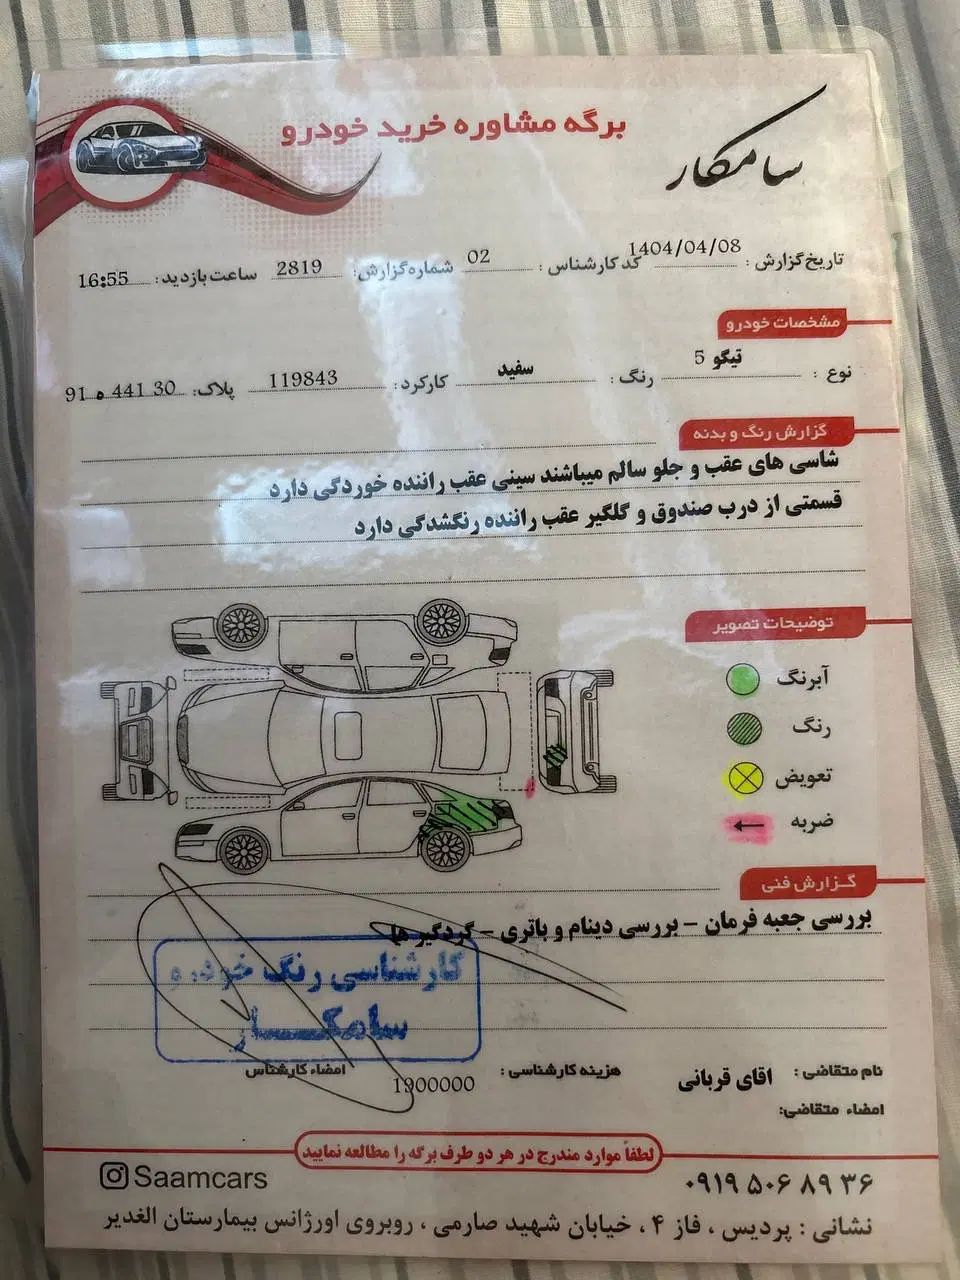 برگه مشاوره خرید خودرو
سامکار
تاریخ گزارش : 1404/04/08 کد کارشناس : 02 شماره گزارش : 2819 ساعت بازدید : 16:55
مشخصات خودرو
نوع : تیگو 5 رنگ : سفید کارکرد : 119843 پلاک : 30 441 ه 91
گزارش رنگ و بدنه
شاسی های عقب و جلو سالم میباشند سینی عقب راننده خوردگی دارد
قسمتی از درب صندوق و گلگیر عقب راننده رنگشدگی دارد
توضیحات تصویر
آبرنگ
رنگ
تعویض
ضربه
گزارش فنی
بررسی جعبه فرمان - بررسی دینام و باتری - گردگیر ها
کارشناسی رنگ خودرو
سامکار
نام متقاضی : اقای قربانی هزینه کارشناسی : 1900000 امضاء کارشناس
امضاء متقاضی:
لطفاً موارد مندرج در هر دو طرف برگه را مطالعه نمایید
۰۹۱۹ ۵۰۶ ۸۹ ۳۶ Saamcars
نشانی : پردیس ، فاز ۴ ، خیابان شهید صارمی ، روبروی اورژانس بیمارستان الغدیر